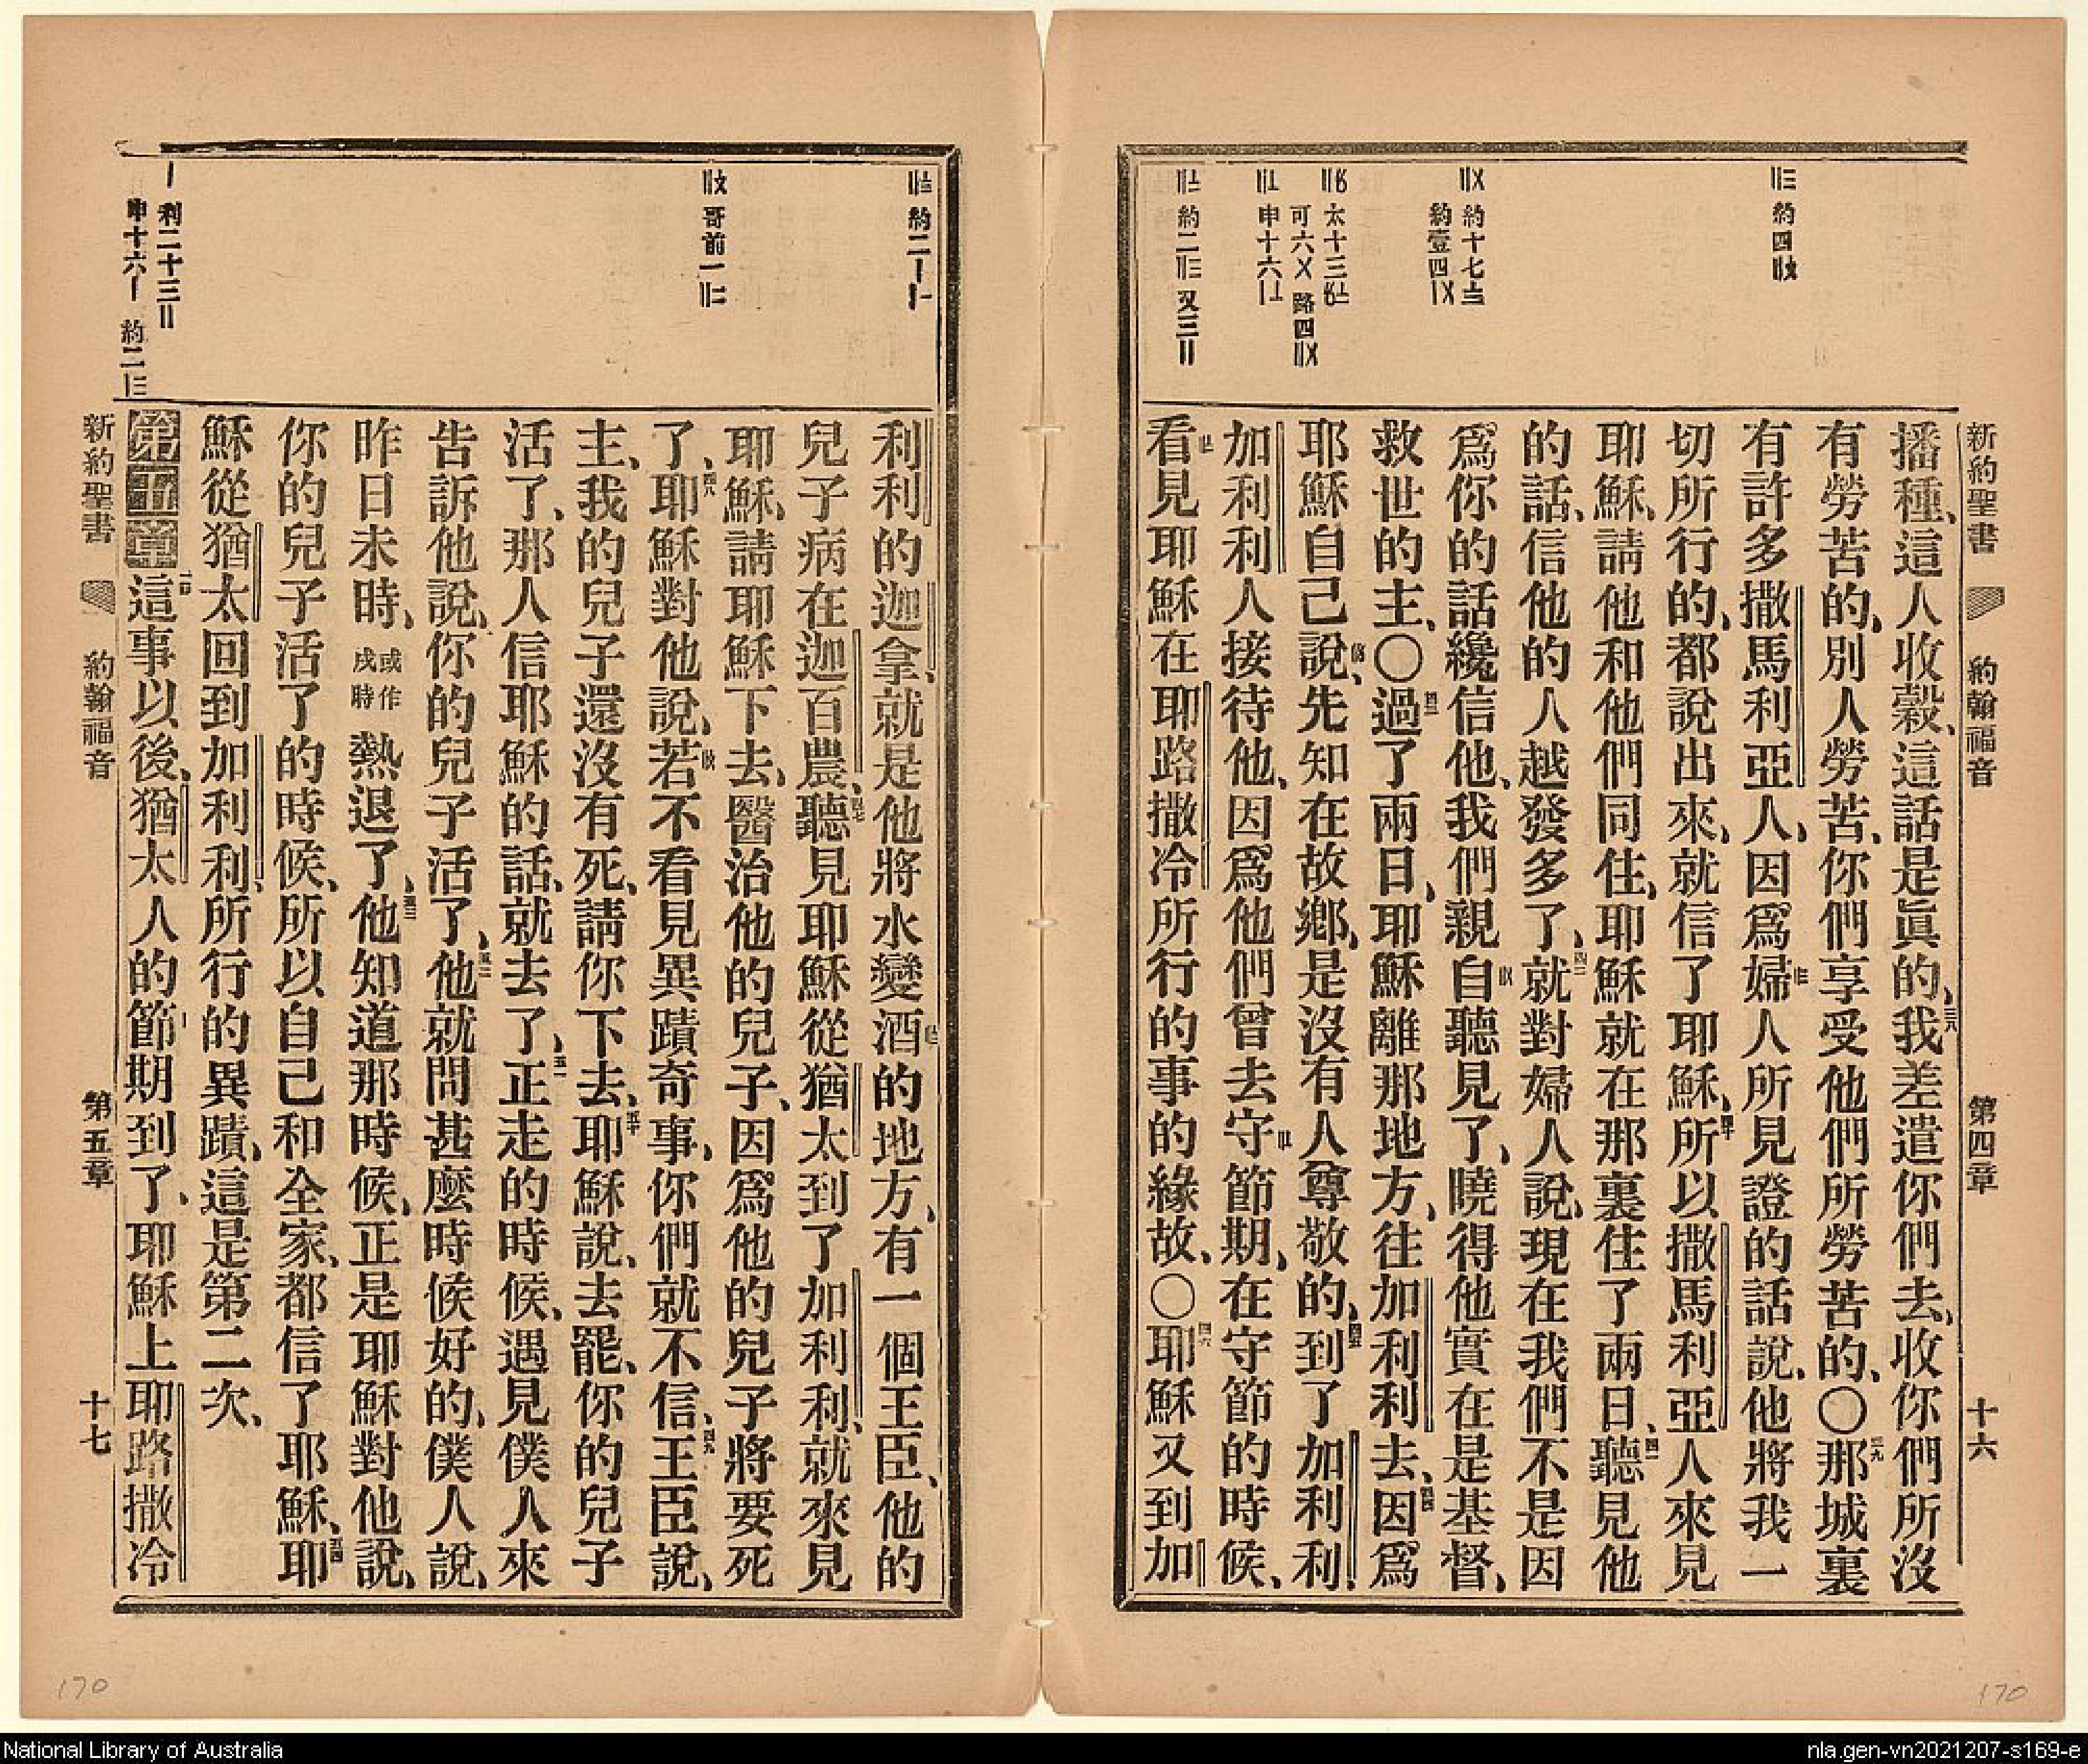 新約聖書 約翰福音 第四章 十六
播種、這人收穀、這話是眞的、三八我差遣你們去、收你們所沒
有勞苦的、別人勞苦、你們享受他們所勞苦的、〇三九那城裏
有許多撒馬利亞人、因爲婦人所見證的話說、他將我一
切所行的、都說出來、就信了耶穌、四十所以撒馬利亞人來見
耶穌、請他和他們同住、耶穌就在那裏住了兩日、四一聽見他
的話、信他的人越發多了、四二就對婦人說、現在我們不是因
爲你的話纔信他、我們親自聽見了、曉得他實在是基督、
救世的主、〇四三過了兩日、耶穌離那地方、往加利利去、四四因爲
耶穌自己說、先知在故鄉、是沒有人尊敬的、四五到了加利利、
加利利人接待他、因爲他們曾去守節期、在守節的時候、
看見耶穌在耶路撒冷所行的事的緣故、〇四六耶穌又到加
〢〣 約四〢
約十七
約壹四〡〤
太十三
可六〤 路四〢〤
申十六〡
約二〢〣 又三〢
利利的迦拿、就是他將水變酒的地方、有一個王臣、他的
兒子病在迦百農、四七聽見耶穌從猶太到了加利利、就來見
耶穌、請耶穌下去、醫治他的兒子、因爲他的兒子將要死
了、四八耶穌對他說、若不看見異蹟奇事、你們就不信、四九王臣說、
主、我的兒子還沒有死、請你下去、五十耶穌說、去罷、你的兒子
活了、那人信耶穌的話、就去了、五一正走的時候、遇見僕人來
告訴他說、你的兒子活了、五二他就問甚麼時候好的、僕人說、
昨日未時、或作戌時熱退了、五三他知道那時候、正是耶穌對他說、
你的兒子活了的時候、所以自己和全家、都信了耶穌、五四耶
穌從猶太回到加利利、所行的異蹟、這是第二次、
第五章一這事以後、猶太人的節期到了、耶穌上耶路撒冷
約二〡〡
哥前一〢〢
〡 利二十三〢
申十六〡 約二〡〣
新約聖書 約翰福音 第五章 十七
170
170
National Library of Australia
nla.gen-vn2021207-s169-e